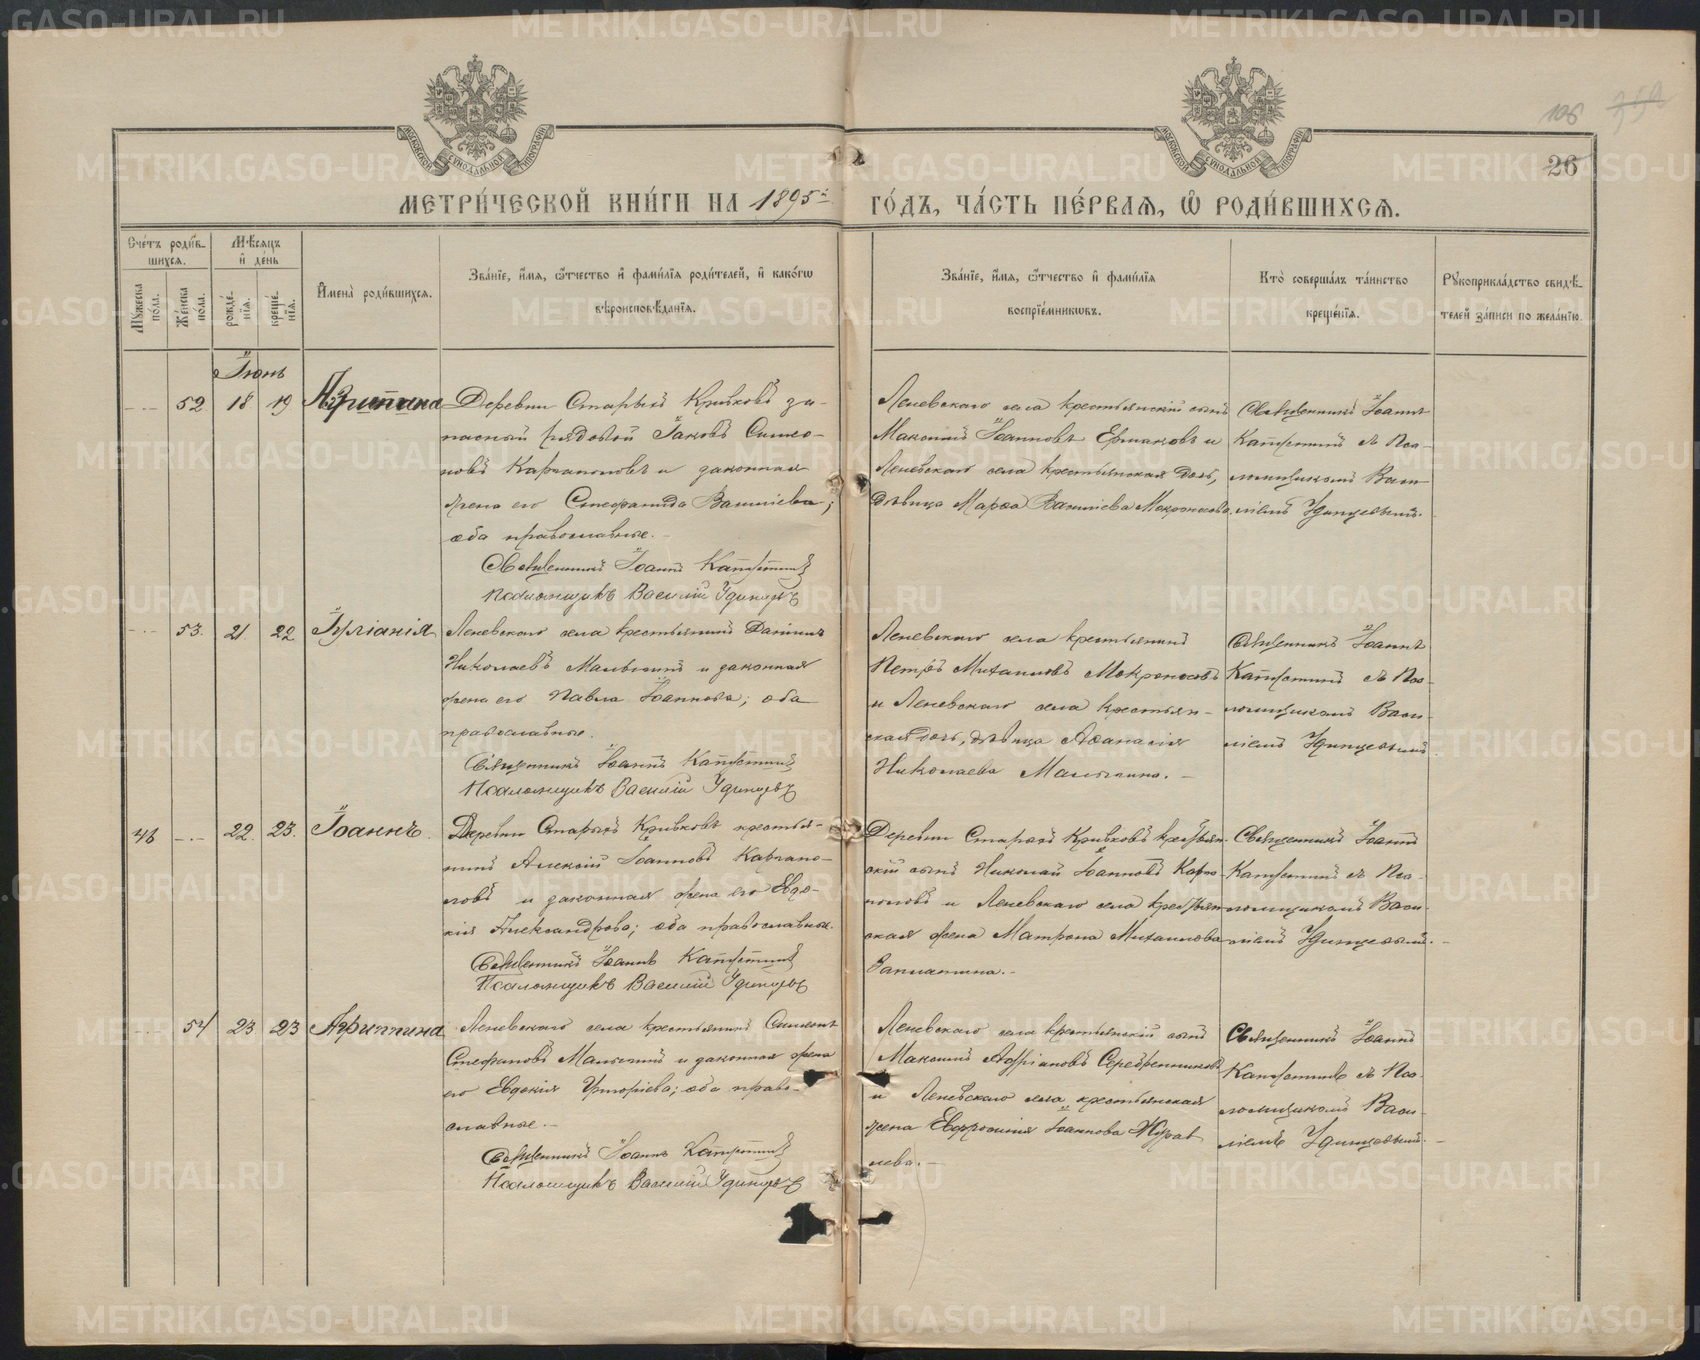 МЕТРИ́ЧЕСКОЙ КНИ́ГИ НА 1895й ГО́ДЪ, ЧА́СТЬ ПЕ́РВАЯ, Ѡ҆ РОДИ́ВШИХСѦ.
106
26
Сче́тъ роди́в-
шихсѧ.
Мꙋ́жеска по́ла.
Же́нска по́ла.
Мѣ́сѧцъ и҆ де́нь
рожде́нїѧ.
креще́нїѧ.
И҆мена̀ роди́вшихсѧ.
Зва́нїе, и҆́мѧ, ѻ҆́тчество и҆ фами́лїѧ роди́телей, и҆ како́гѡ
вѣроисповѣ́данїѧ.
Зва́нїе, и҆́мѧ, ѻ҆́тчество и҆ фами́лїѧ
воспрїе́мникѡвъ.
Кто̀ соверша́лъ та́инство
креще́нїѧ.
Рꙋкоприкла́дство свидѣ́-
телей за́писи по жела́нїю.
Іюнь
52 18 19 Агриппина
Деревни Старыхъ Кривковъ за-
пасный рядовой Іаковъ Симео-
новъ Каргаполовъ и законная
жена его Стефанида Василіева;
оба православные.
Священникъ Іоаннъ
Псаломщикъ Василій Удинцевъ
Леневскаго села крестьянскій сынъ
Максимъ Іоанновъ Ермаковъ и
Леневскаго села крестьянская дочь,
дѣвица Марѳа Василіева Мокроносова
Священникъ Іоаннъ
съ Пса-
ломщикомъ Васи-
ліемъ Удинцевымъ.
53. 21 22 Іуліанія
Леневскаго села крестьянинъ Даніилъ
Николаевъ Малыгинъ и законная
жена его Павла Іоаннова; оба
православные.
Священникъ Іоаннъ
Псаломщикъ Василій Удинцевъ
Леневскаго села крестьянинъ
Петръ Михаиловъ Мокроносовъ
и Леневскаго села крестьян-
ская дочь, дѣвица Аѳанасія
Николаева Малыгина.
Священникъ Іоаннъ
съ Пса-
ломщикомъ Васи-
ліемъ Удинцевымъ.
46 22. 23. Іоаннъ
Деревни Старыхъ Кривковъ крестья-
нинъ Алексій Іоанновъ Каргапо-
ловъ и законная жена его Евдо-
кія Александрова; оба православные.
Священникъ Іоаннъ
Псаломщикъ Василій Удинцевъ
Деревни Старыхъ Кривковъ крестьян-
скій сынъ Николай Іоанновъ Карга-
половъ и Леневскаго села крестьян-
ская жена Матрона Михаилова
Заплатина.
Священникъ Іоаннъ
съ Пса-
ломщикомъ Васи-
ліемъ Удинцевымъ.
54 23 23 Агриппина
Леневскаго села крестьянинъ Симеонъ
Стефановъ Малыгинъ и законная жена
его Евдокія Григоріева; оба право-
славные.
Священникъ Іоаннъ
Псаломщикъ Василій Удинцевъ
Леневскаго села крестьянскій сынъ
Максимъ Адріановъ Серебренниковъ
и Леневскаго села крестьянская
жена Евфросинія Іоаннова Журав
лева.
Священникъ Іоаннъ
съ Пса-
ломщикомъ Васи-
ліемъ Удинцевымъ.
METRIKI.GASO-URAL.RU